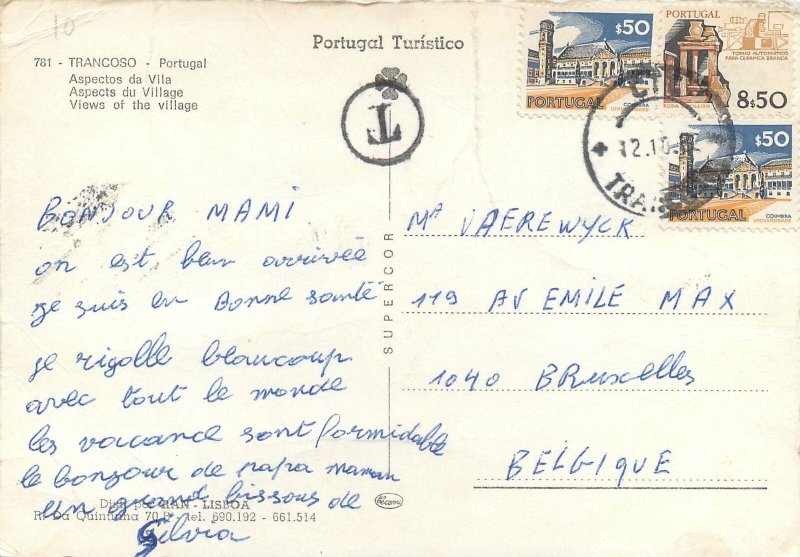 10
781 - TRANCOSO - Portugal
Aspectos da Vila
Aspects du Village
Views of the village
Portugal Turístico
T
$50
PORTUGAL
COIMBRA
UNIVERSIDADE
PORTUGAL
TORNO AUTOMÁTICO
PARA CERÂMICA BRANCA
8$50
12.10
TRAN
$50
PORTUGAL
COIMBRA
UNIVERSIDADE
BONJOUR MAMI
on est bien arrivée
je suis en Bonne santé
je rigolle beaucoup
avec tout le monde
les vacance sont formidable
le bonjour de papa maman
un grand bissous de
Silvia
SUPERCOR
VAEREWYCK
119 AV EMILE MAX
1040 BRuxelles
BELGIQUE
Dist. por RAN - LISBOA
R. Da Quintinha 70 B - tel. 690.192 - 661.514